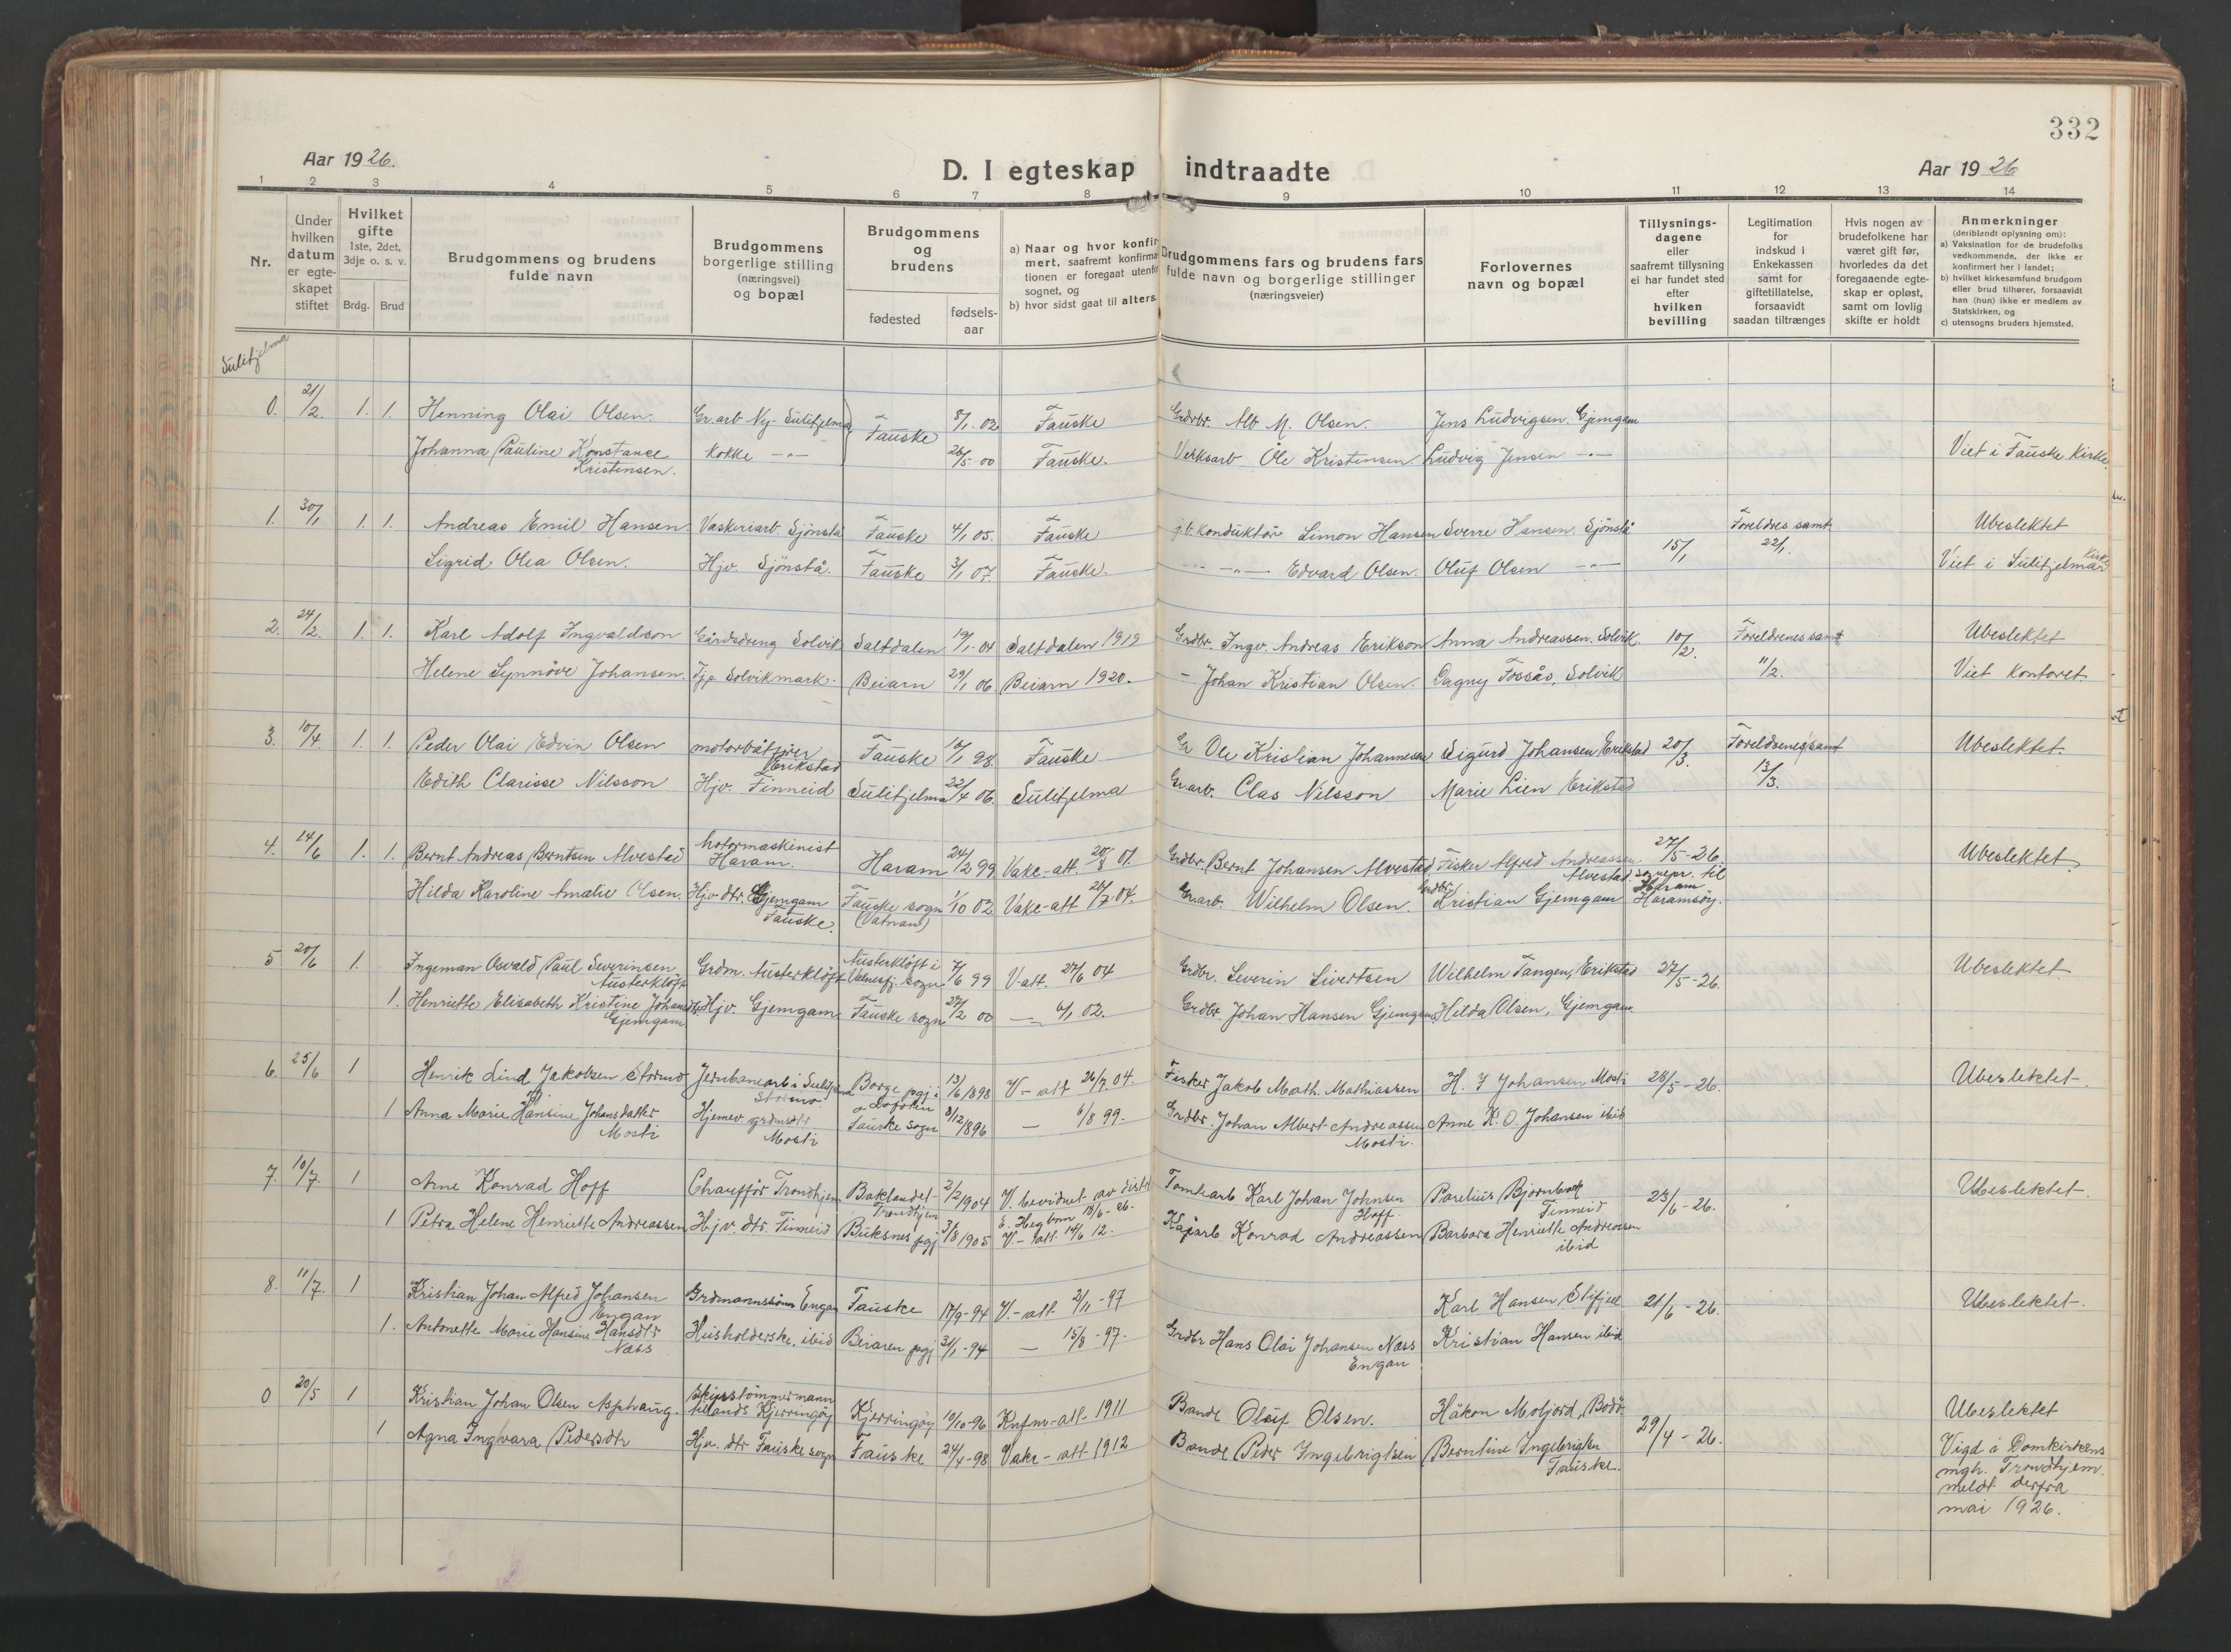 332
Aar 1926.
D. I egteskap indtraadte
Aar 1926
1 2 3 4 5 6 7 8 9 10 11 12 13 14
Nr.
Under hvilken datum er egteskapet stiftet
Hvilket gifte 1ste, 2det, 3dje o. s. v.
Brdg. Brud
Brudgommens og brudens fulde navn
Brudgommens borgerlige stilling (næringsvei) og bopæl
Brudgommens og brudens
fødested
fødsels-aar
a) Naar og hvor konfirmert, saafremt konfirmationen er foregaat utenfor sognet, og
b) hvor sidst gaat til alters.
Brudgommens fars og brudens fars fulde navn og borgerlige stillinger (næringsveier)
Forlovernes navn og bopæl
Tillysnings-dagene eller saafremt tillysning ei har fundet sted efter hvilken bevilling
Legitimation for indskud i Enkekassen samt for giftetillatelse, forsaavidt saadan tiltrænges
Hvis nogen av brudefolkene har været gift før, hvorledes da det foregaaende egteskap er opløst, samt om lovlig skifte er holdt
Anmerkninger (deriblandt oplysning om):
a) Vaksination for de brudefolks vedkommende, der ikke er konfirmert her i landet;
b) hvilket kirkesamfund brudgom eller brud tilhører, forsaavidt han (hun) ikke er medlem av Statskirken, og
c) utensogns bruders hjemsted.
Sulitjelma
0. 21/2. 1. 1. Henning Olai Olsen. Gr.arb Ny-Sulitjelma Fauske 8/1. 02 Fauske Grdbr. Alb M. Olsen. Jens Ludvigsen. Gjemgam
Johanna Pauline Konstance Kristensen. Kokke -"- 26/5-00 Fauske. Verksarb Ole Kristensen. Ludvig Jensen -"- Viet i Fauske Kirke.
1. 30/1 1. 1. Andreas Emil Hansen. Vaskeriarb. Sjönstå Fauske 4/1 05. Fauske j.b. konduktör Simon Hansen Sverre Hansen. Sjönstå 15/1 Foreldres samt. 22/1. Ubeslektet
Sigrid Olea Olsen. Hjv. Sjönstå. Fauske 3/1 07. Fauske. -"- Edvard Olsen. Oluf Olsen -"- Viet i Sulitjelma Kirke
2. 24/2. 1. 1. Karl Adolf Ingvaldson Gårdsdreng Solvik Saltdalen 19/1-04 Saltdalen 1919 Grdbr. Ingv. Andreas Erikson Anna Andreassen. Solvik. 10/2. Foreldrenes samt 11/2. Ubeslektet
Helene Synnöve Johansen. Tjp Solvikmark. Beiarn 29/1 06 Beiarn 1920. - Johan Kristian Olsen. Dagny Fossås, Solvik Viet Kontoret.
3. 10/4 1. 1. Peder Olai Edvin Olsen motorbåtfører Erikstad Fauske 10/1 98. Fauske Gr Ole Kristian Johannesen Sigurd Johansen Erikstad 20/3. Foreldrenes samt 13/3. Ubeslektet.
Edith Clarisse Nilsson Hjv. Finneid Sulitjelma 22/4 06. Sulitjelma Gr.arb. Clas Nilsson Marie Lien Erikstad
4. 14/6 1. 1. Bernt Andreas Berntsen Alvestad Motormaskinist Haram. Haram 24/2 99 Vakc-att. 20/8 01. Grdbr. Bernt Johansen Alvestad Fisker Alfred Andreassen Alvestad. 27/5-26. sognepr. til Haram Haramsöy. Ubeslektet.
Hilda Karoline Amalie Olsen. Hjv dtr. Gjemgam Fauske. Fauske sogn (Vatnan) 1/10 02 Vakc-att 26/7 04. Gr.arb. Wilhelm Olsen. Grdbr. Kristian Gjemgam
5 20/6 1. Ingeman Osvald Paul Severinsen Austerklöft Grdm. Austerklöft Austerklöft i Valnesfj. sogn 7/6 99 V-att. 27/6 04 Grdbr. Severin Sivertsen Wilhelm Tangen, Erikstad 27/5-26. Ubeslektet.
1. Henriette Elisabeth Kristine Johansdtr Gjemgam Hjv. Gjemgam Fauske sogn 27/2 00 — 6/1 02. Grdbr. Johan Hansen Gjemgam Hilda Olsen, Gjemgam.
6. 25/6 1 Henrik Lind Jakobsen Stormo Jernbanearb i Sulitjelma Stormo. Borge pgj i Lofoten 13/6 1898 V-att 26/7. 04. Fisker Jakob Math. Mathiassen H. J Johansen Mosti 28/5-26. Ubeslektet.
1 Anna Marie Hansine Johansdatter Mosti Hjemev grdmdtr Mosti Fauske sogn 8/12 1896 — 6/8 99. Grdbr. Johan Albert Andreassen Mosti. Anne K. O. Johansen ibid
7. 10/7. 1 Arne Konrad Hoff Chauffør Trondhjem Baklandet Trondhjem 2/2 1904 V. bevidnet av distr. E. Hegbom 18/6-26. Tomtearb Karl Johan Johnsen Hoff. Parelius Bjørnbak Finneid 23/6-26. Ubeslektet.
1 Petra Helene Henriette Andreassen Hjv. dtr. Finneid Buksnes pgj 3/8 1905 V.-att. 14/6 12. Kaiarb Konrad Andreassen Barbara Henriette Andreassen ibid
8. 11/7. 1 Kristian Johan Alfred Johansen Engan Grdmannssönn Engan Fauske 17/9-94 V.-att. 2/11-97 Karl Hansen, Stifjell 21/6-26. Ubeslektet.
1. Antonette Marie Hansine Hansdtr Næss Husholderske, ibid Beiaren pgj 31/1-94 — 15/8-97. Grdbr Hans Olai Johansen Næss Engan Kristian Hansen ibid
0 20/5 1 Kristian Johan Olsen Asphaug. Skipstömmermann Kjerringøy Kjerringöy 10/10-96 Knfm-att. 1911 Bonde Oluf Olsen. Håkon Moljord, Bodö 29/4-26. Ubeslektet
1 Agna Ingvara Pedersdtr Hjv. dtr Fauske sogn Fauske 24/4-98 Vakc-att 1912 Bonde Peder Ingebrigtsen Berntine Ingebrigtsen Fauske. Vigd i Domkirkens mgh. Trondhjem. meldt derfra mai 1926.